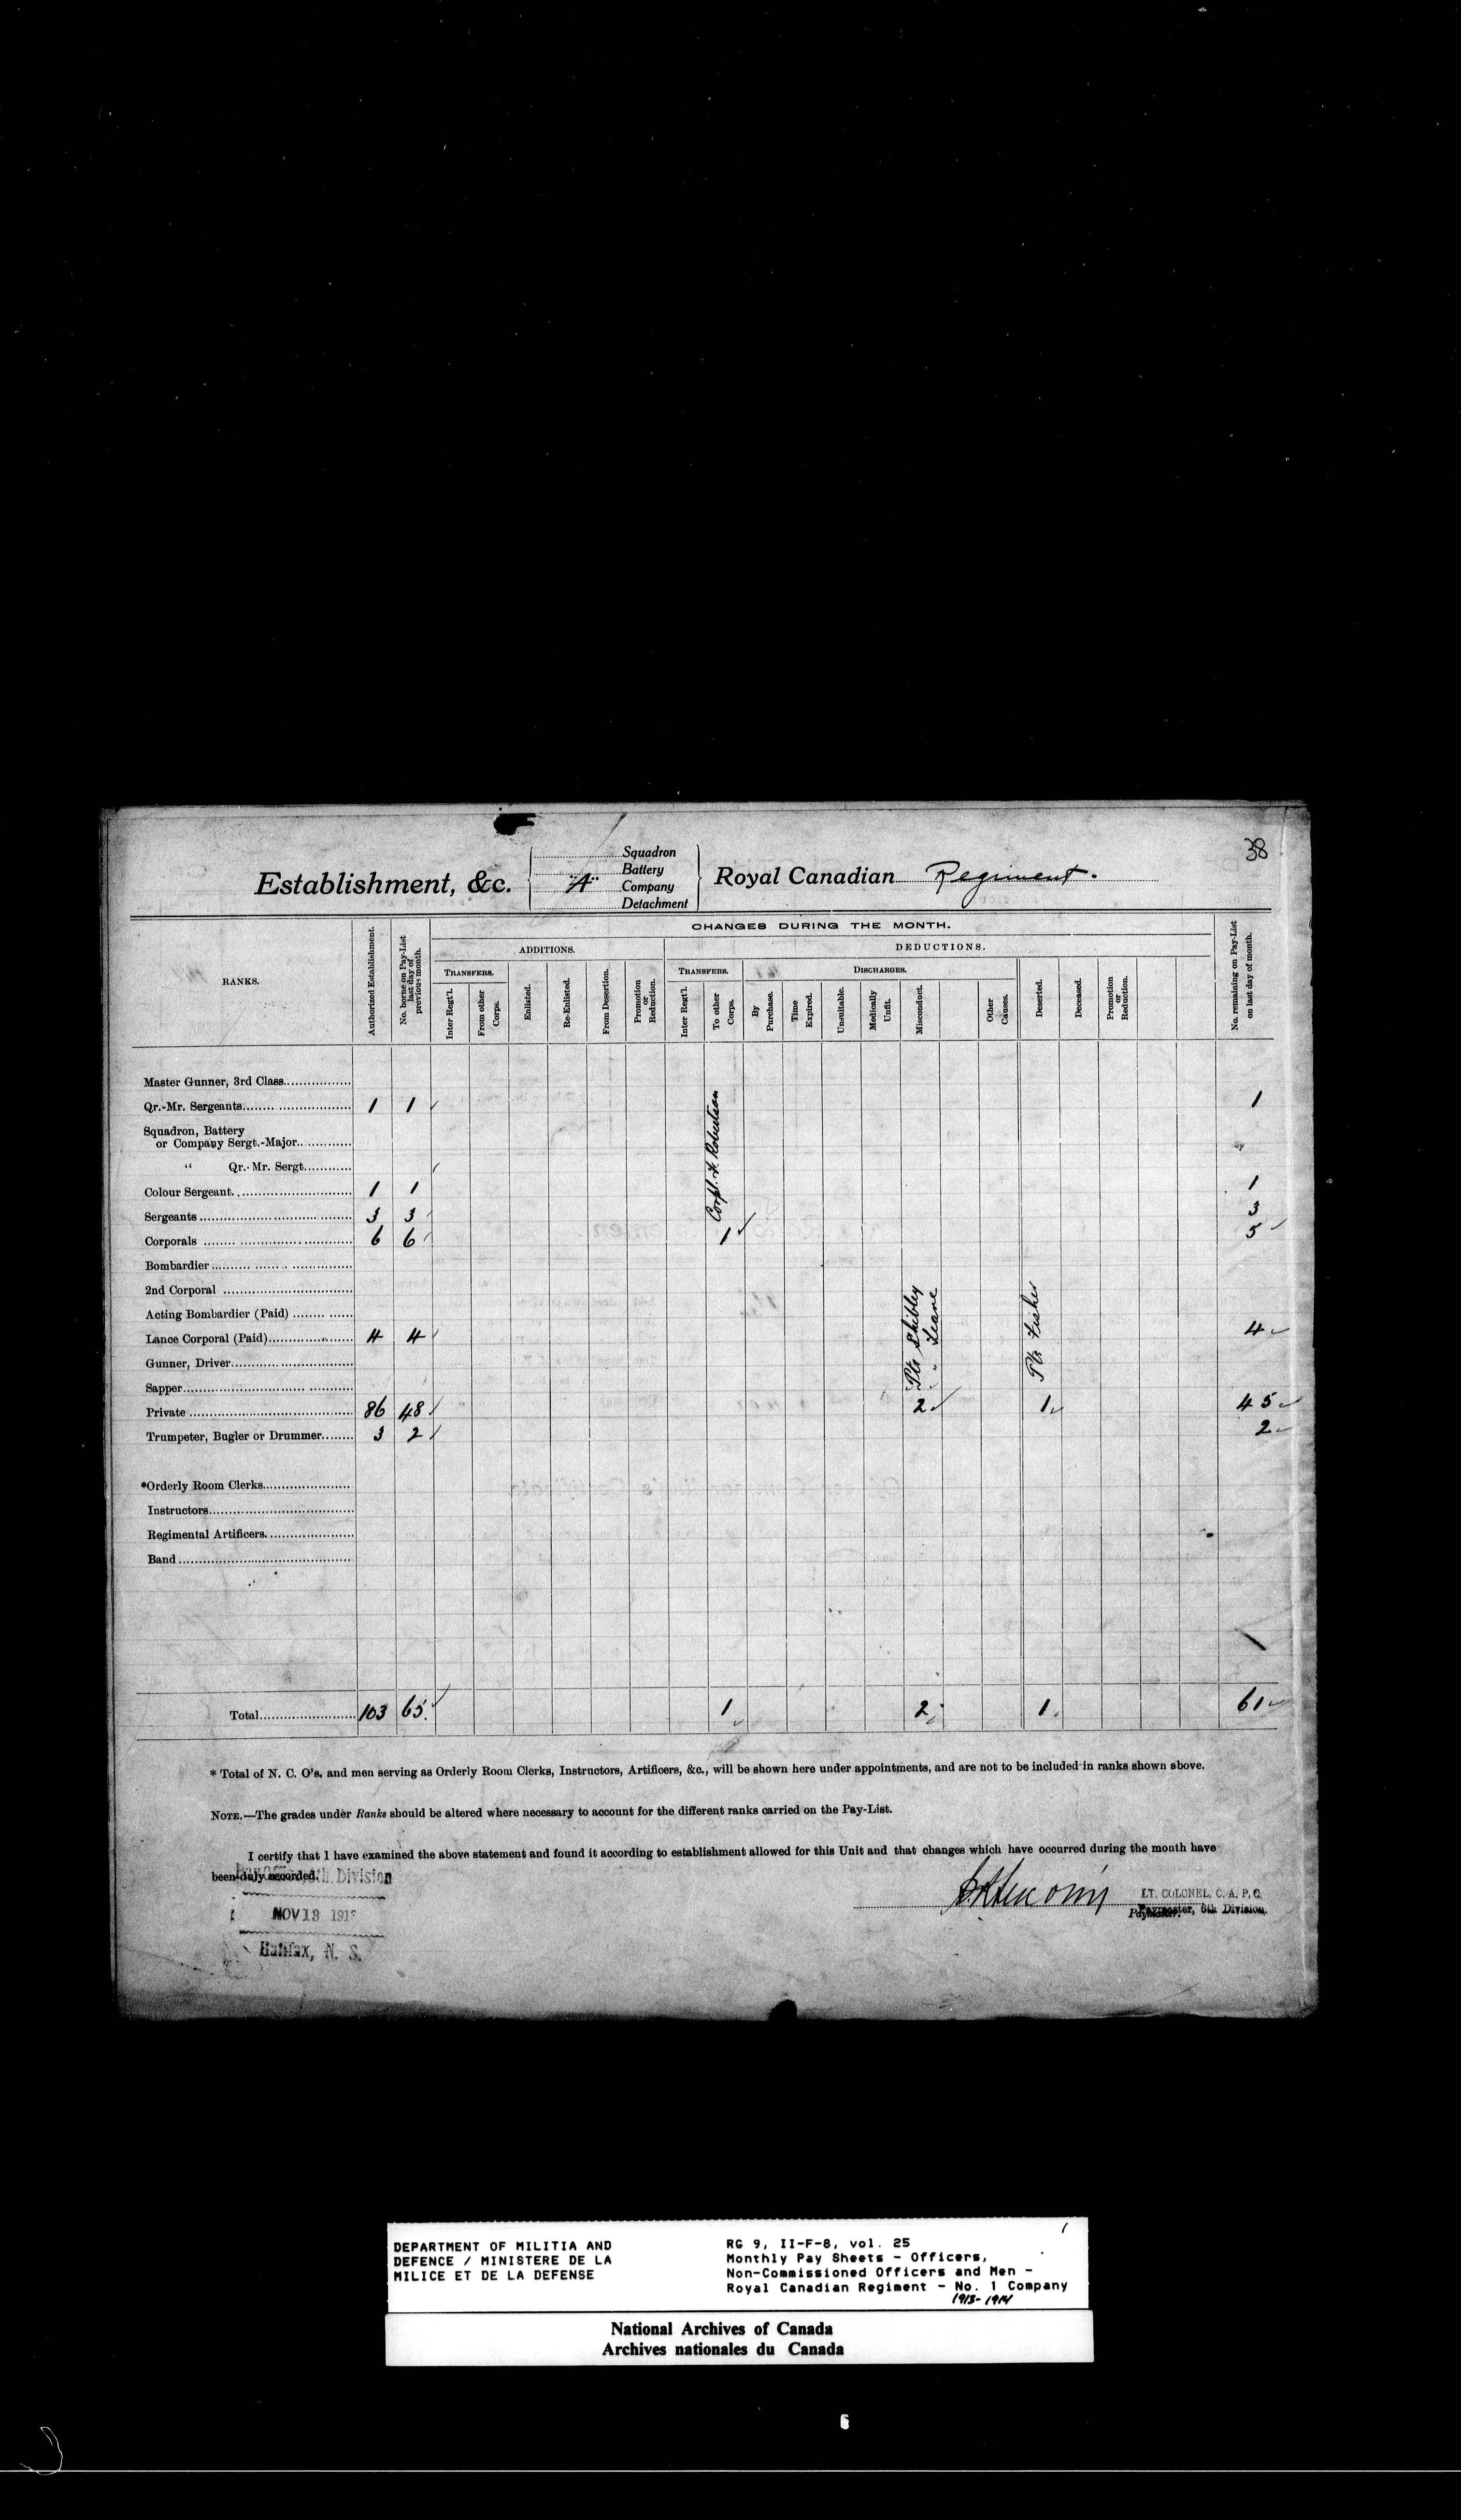 38
Squadron
Battery
Establishment, &c. "A" Company Royal Canadian Regiment.
Detachment
CHANGES DURING THE MONTH.
ADDITIONS. DEDUCTIONS.
TRANSFERS. TRANSFERS. DISCHARGES.
RANKS. Authorized Establishment. No. borne on Pay-List last day of previous month. Inter Regt'l. From other Corps. Enlisted. Re-Enlisted. From Desertion. Promotion or Reduction. Inter Regt'l. To other Corps. By Purchase. Time Expired. Unsuitable. Medically Unfit. Misconduct. Other Causes. Deserted. Deceased. Promotion or Reduction. No. remaining on Pay-List on last day of month.
Master Gunner, 3rd Class
Qr.-Mr. Sergeants 1 1 1
Squadron, Battery
or Company Sergt.-Major
" Qr.-Mr. Sergt.
Colour Sergeant 1 1 1
Sergeants 3 3 3
Corpl. H. Robertson
Corporals 6 6 1 5
Bombardier
2nd Corporal
Acting Bombardier (Paid)
Lance Corporal (Paid) 4 4 4
Gunner, Driver
Sapper
Pte Shibley
" Leane
Pte Fisher
Private 86 48 2 1 45
Trumpeter, Bugler or Drummer 3 2 2
*Orderly Room Clerks
Instructors
Regimental Artificers
Band
Total 103 65 1 2 1 61
* Total of N. C. O's. and men serving as Orderly Room Clerks, Instructors, Artificers, &c., will be shown here under appointments, and are not to be included in ranks shown above.
NOTE.—The grades under Ranks should be altered where necessary to account for the different ranks carried on the Pay-List.
I certify that I have examined the above statement and found it according to establishment allowed for this Unit and that changes which have occurred during the month have
been duly recorded.
Division
LT. COLONEL, C. A. P. C.
Paymaster, 6th Division.
Paymaster.
NOV 13 191
Halifax, N. S.
DEPARTMENT OF MILITIA AND
DEFENCE / MINISTERE DE LA
MILICE ET DE LA DEFENSE
1
RG 9, II-F-8, vol. 25
Monthly Pay Sheets - Officers,
Non-Commissioned Officers and Men -
Royal Canadian Regiment - No. 1 Company
1913-1914
National Archives of Canada
Archives nationales du Canada
6